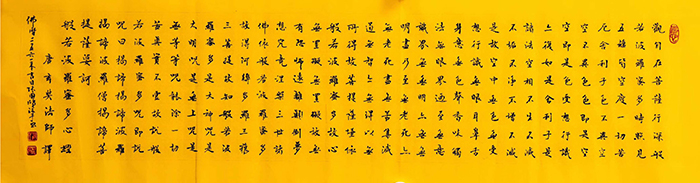 觀自在菩薩行深般
若波羅蜜多時照見
五蘊皆空度一切苦
厄舍利子色不異空
空不異色色即是空
空即是色受想行識
亦復如是舍利子是
諸法空相不生不滅
不垢不淨不增不減
是故空中無色無受
想行識無眼耳鼻舌
身意無色聲香味觸
法無眼界乃至無意
識界無無明亦無無
明盡乃至無老死亦
無老死盡無苦集滅
道無智亦無得以無
所得故菩提薩埵依
般若波羅蜜多故心
無罣礙無罣礙故無
有恐怖遠離顛倒夢
想究竟涅槃三世諸
佛依般若波羅蜜多
故得阿耨多羅三藐
三菩提故知般若波
羅蜜多是大神咒是
大明咒是無上咒是
無等等咒能除一切
苦真實不虛故說般
若波羅蜜多咒即說
咒曰揭諦揭諦波羅
揭諦波羅僧揭諦菩
提薩婆訶
般若波羅蜜多心經
唐玄奘法師譯
佛曆二五六一年